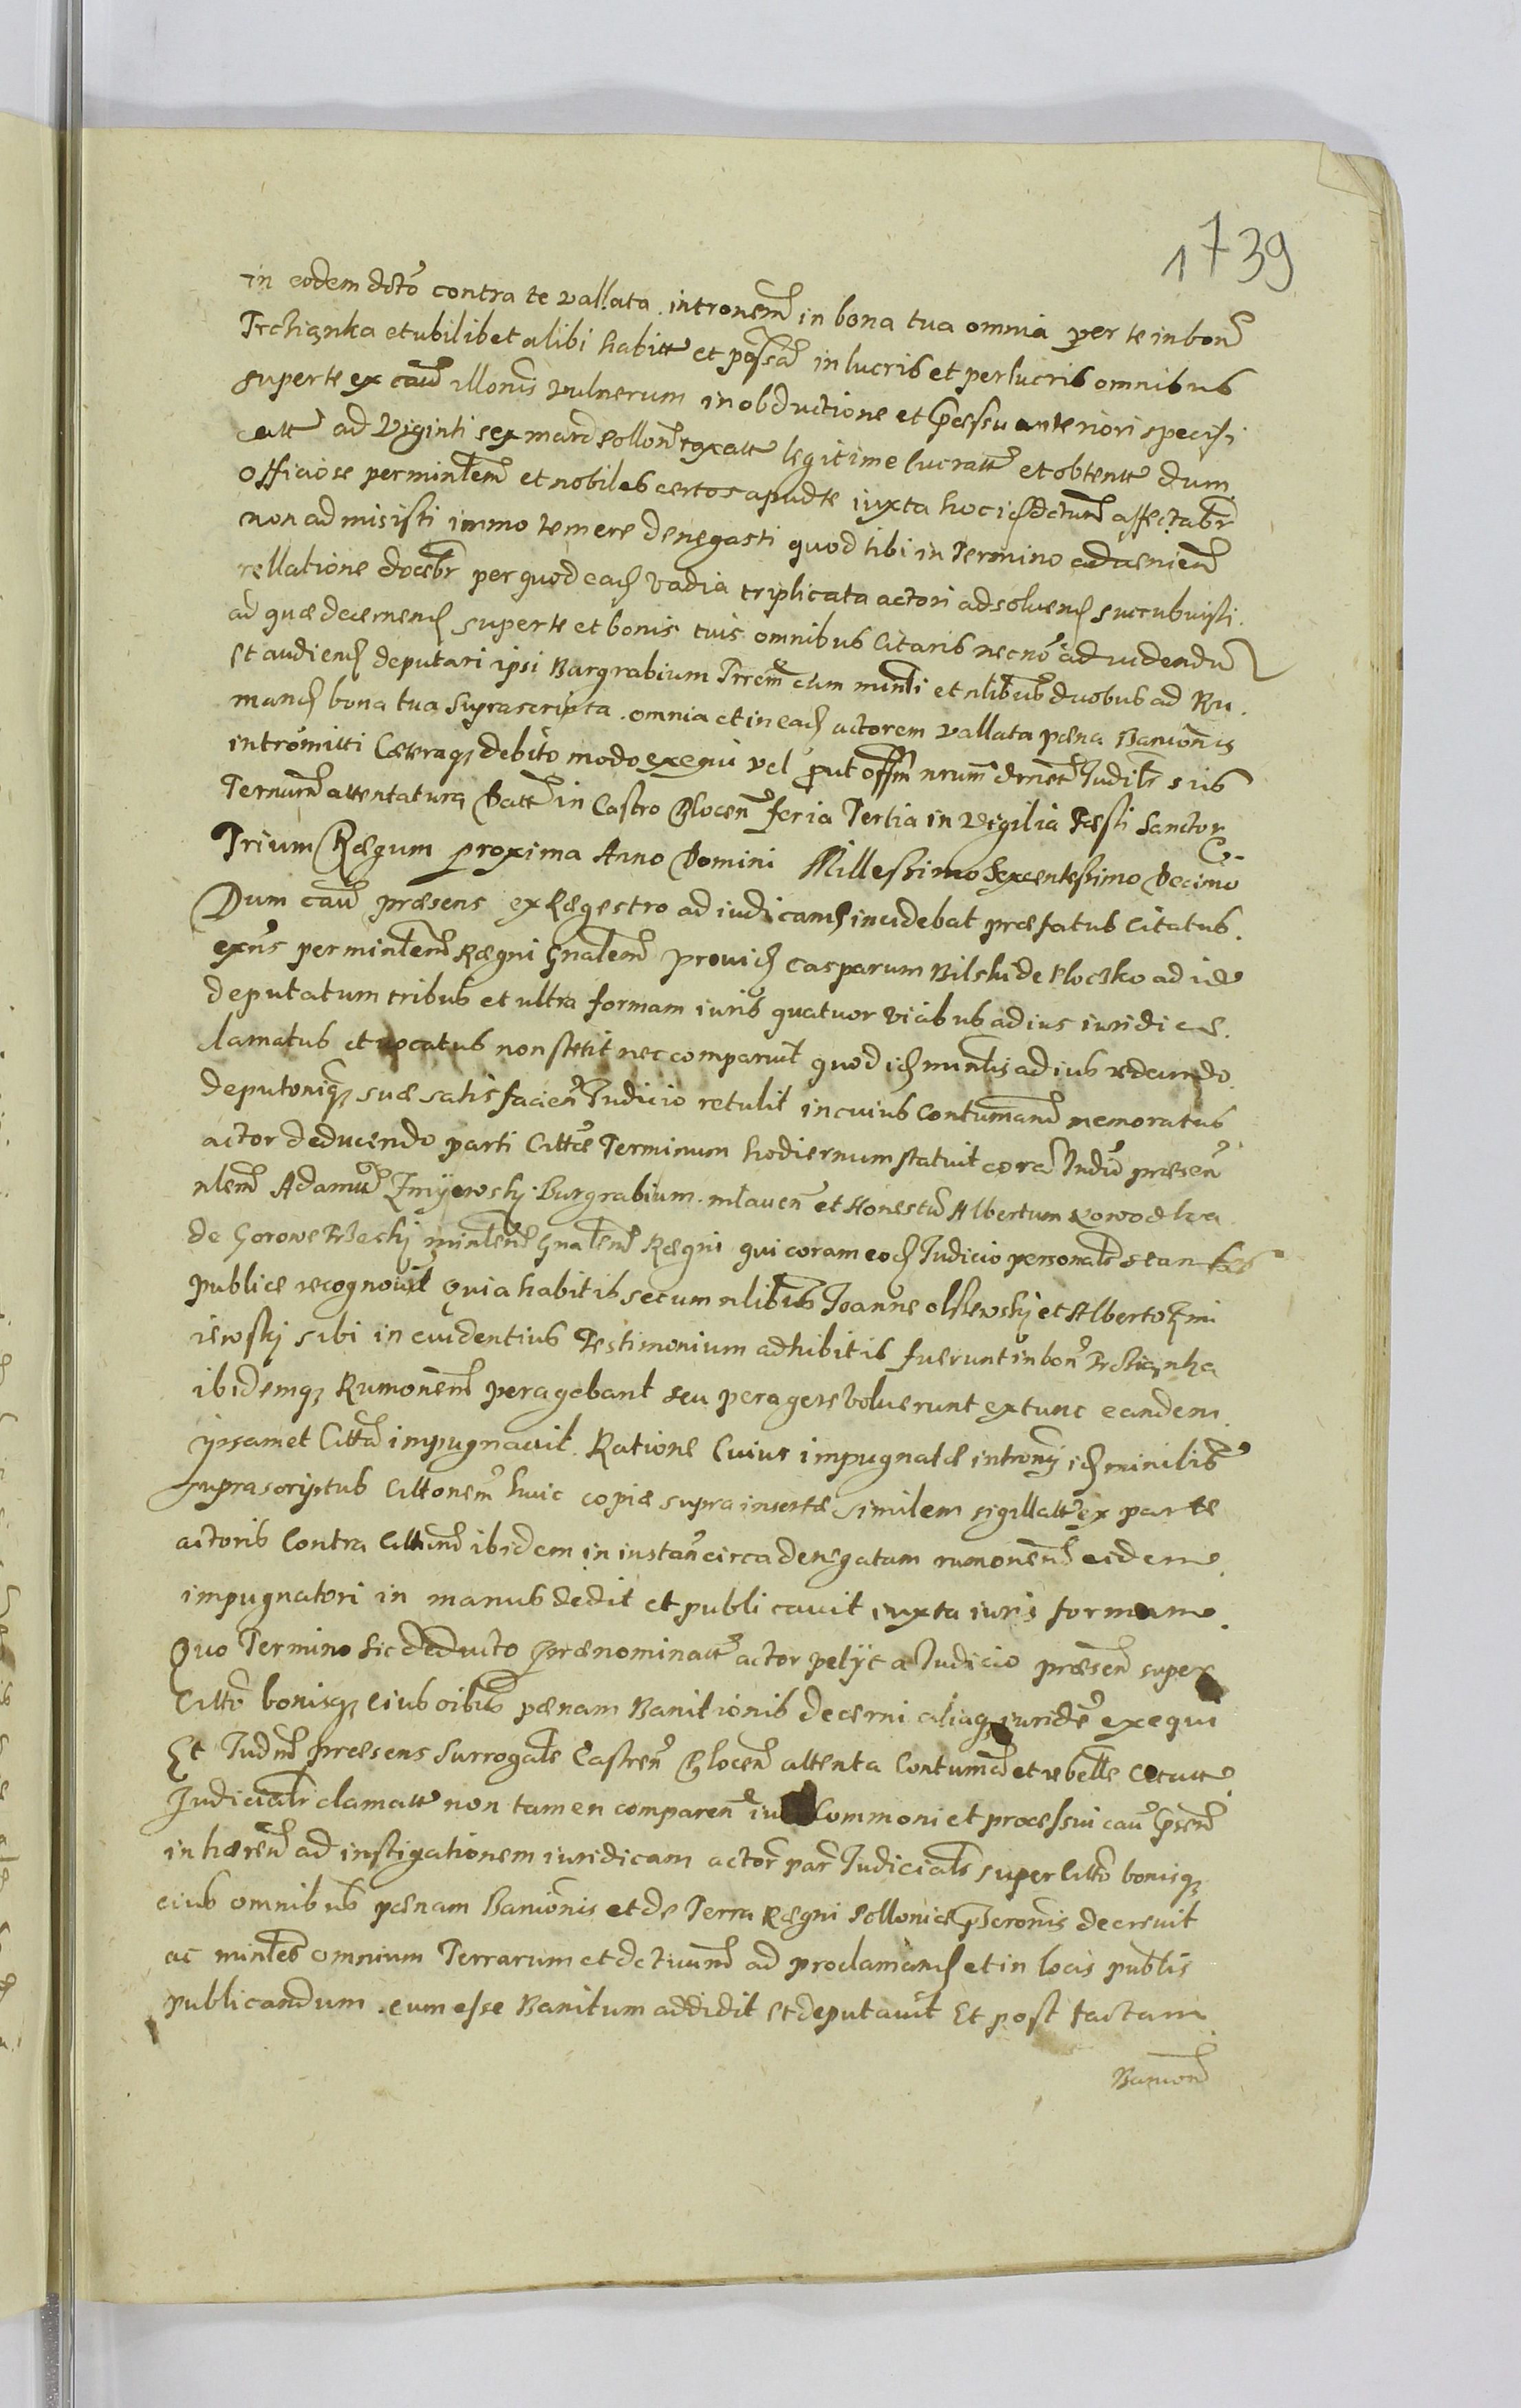 1739
in eodem dcto contra te vallata. intronem in bona tua omnia per te in bon
Trchianka et ubilibet alibi habitt et possa in lucris et perlucris omnibus
super te ex cau illonis vulnerum in obductione et pcessu anteriori specifi
catt ad Viginti sex marc pollon taxatt legitime lucratt et obtentt dum
officiose per minlem et nobiles certos apud te iuxta hoc id dctum affectabr
non admisisti immo temere denegasti quod tibi in Termino adveniem
rellatione docebr per quod ead vadia triplicata actori ad solvend succubuisti.
ad quæ decernend super te et bonis tuis omnibus Citaris necno ad videndu
et audiend deputari ipsi Burgrabium Trrem cum minli et nlibus duobus ad Ru.
mand bona tua suprascripta. omnia et in ead actorem vallata pæna Banionis
intromitti Cæteraq debito modo exequi vel prout offm nrum drnet Judilr sis
Ternum attentatura Datt in Castro Plocen feria Tertia in Vigilia Festi Sanctor
Trium Rægum proxima Anno Domini Millessimo Sexcentessimo Decimo
Dum cau præsens ex Rægestro ad iudicand incidebat præfatus Citatus.
exns per minlem Rægni Gnalem Provid Casparum Bilski de Ploczko ad id
deputatum tribus et ultra formam iuris quatuor vicibus ad ius iuridice.
clamatus et vocatus non stetit nec comparuit quod id minlis ad ius rdeundo.
deputoniq suæ satisfacien Judicio retulit in cuius Contumam memoratus
actor deducendo parti Cittæ Terminum hodiernum statuit cora Indio præsen
nlem Adamu Zmyiewskj Burgrabium. mlaven et Honestu Albertum Kowodka
de Gorowe Trzaski minlem Gnalem Rægni qui coram eod Judicio personalr stantes
publice recognovit Quia habitis secum nlibus Joanne olszewskj et Alberto Zmi
iewskj sibi in evidentius Testimonium adhibitis fuerunt in bon Trchianka
ibidemq Rumonem peragebant seu peragere voluerunt extunc eandem.
ipsamet Citta impugnavit. Ratione Cuius impugnatæ intronis id minilis
suprascriptus Cittonem huic copiæ supra insertæ similem sigillatt ex parte
actoris Contra Cittum ibidem in instan circa denegatam rumonem eidem.
impugnatori in manus dedit et publicavit iuxta iuris formam.
Quo Termino sic deducto prænominatt actor petijt a Judicio præsen super
Citto bonisq eius oibus pænam Banitionis decerni aliaq iuride exequi
Et Judm præsens Surrogale Castren Plocen attenta Contuma et rebelle Citatt
Judicialr clamatt non tamen comparen iu Commoni et processui cau psen
inhæren ad instigationem iuridicam actor par Judicialr super Citto bonisq
eius omnibus pænam Banionis et de Terra Rægni Polloniæ pscronis decrevit
ac minles omnium Terrarum et dctuum ad proclamand et in locis publis
publicandum. eum esse Banitum addidit et deputavit Et post factam
Banion